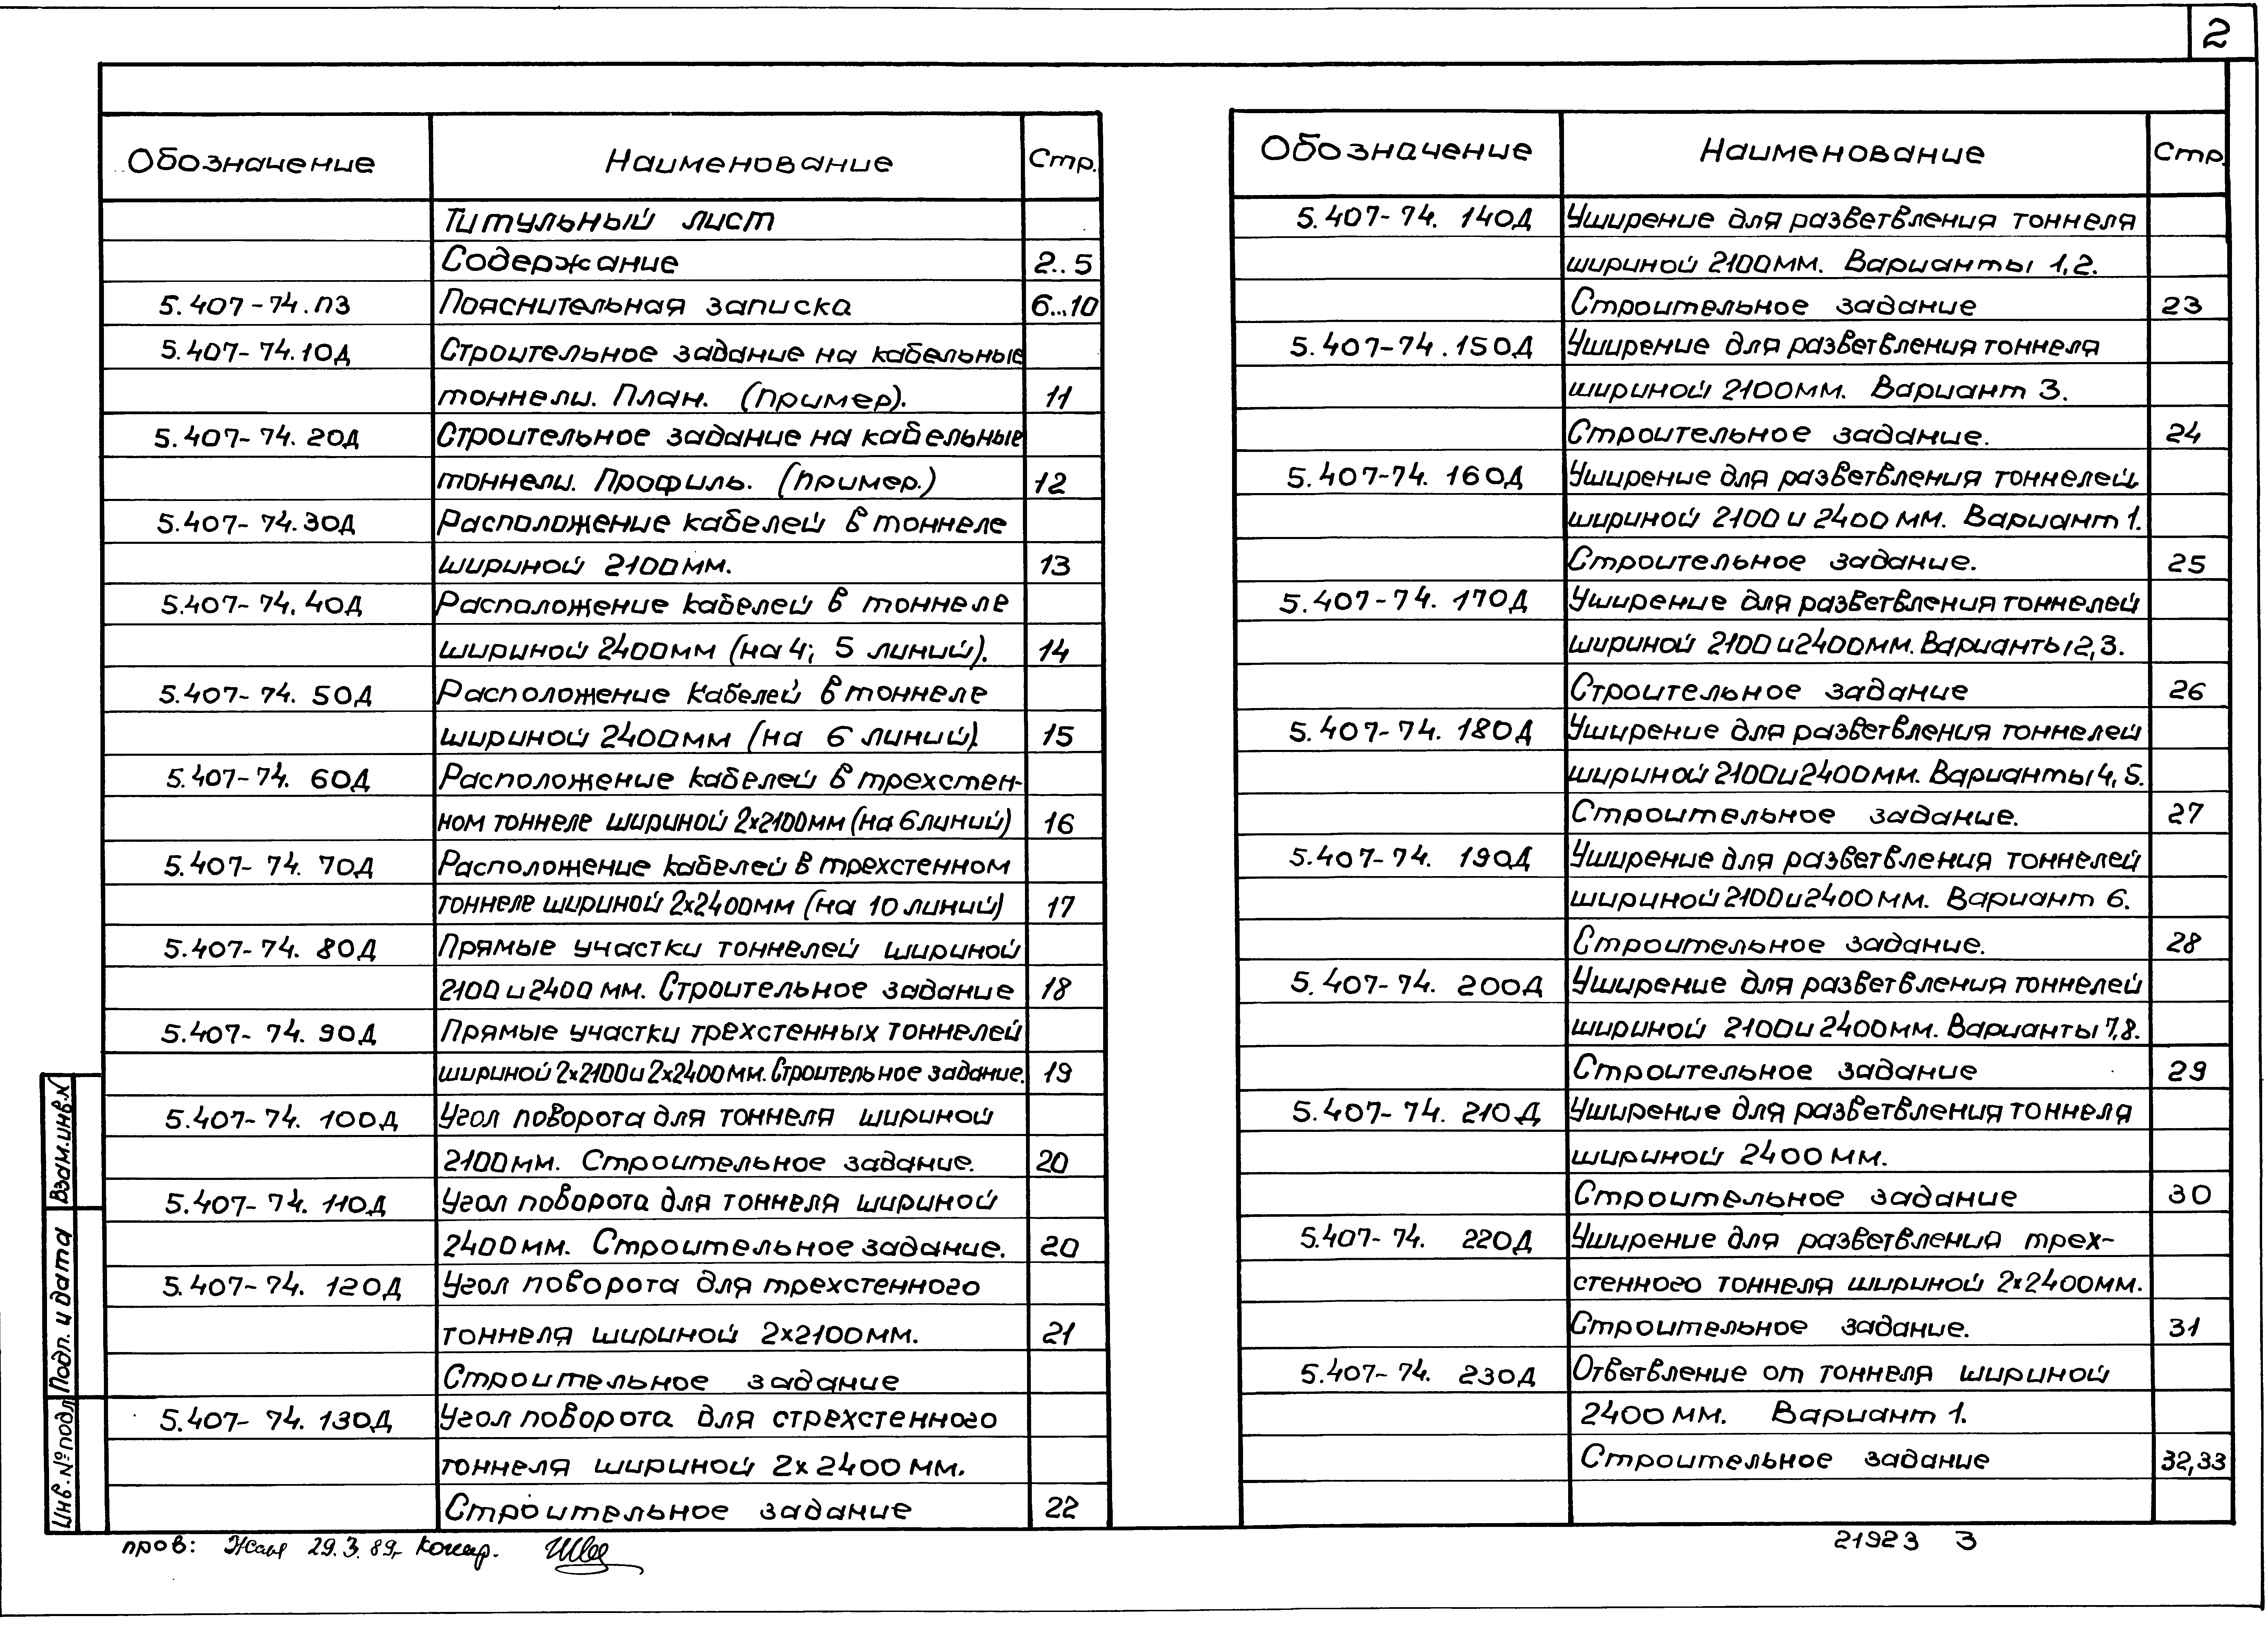 2
Обозначение Наименование Стр.
Титульный лист
Содержание 2..5
5.407-74.ПЗ Пояснительная записка 6...10
5.407-74.10Д Строительное задание на кабельные
тоннели. План. (пример). 11
5.407-74.20Д Строительное задание на кабельные
тоннели. Профиль. (пример.) 12
5.407-74.30Д Расположение кабелей в тоннеле
шириной 2100мм. 13
5.407-74.40Д Расположение кабелей в тоннеле
шириной 2400мм (на 4; 5 линий). 14
5.407-74. 50Д Расположение кабелей в тоннеле
шириной 2400мм (на 6 линий). 15
5.407-74. 60Д Расположение кабелей в трехстен-
ном тоннеле шириной 2х2100мм (на 6 линий) 16
5.407-74. 70Д Расположение кабелей в трехстенном
тоннеле шириной 2х2400мм (на 10 линий) 17
5.407-74. 80Д Прямые участки тоннелей шириной
2100 и 2400 мм. Строительное задание 18
5.407-74. 90Д Прямые участки трехстенных тоннелей
шириной 2х2100 и 2х2400 мм. Строительное задание. 19
5.407-74. 100Д Угол поворота для тоннеля шириной
2100мм. Строительное задание. 20
5.407-74. 110Д Угол поворота для тоннеля шириной
2400мм. Строительное задание. 20
5.407-74. 120Д Угол поворота для трехстенного
тоннеля шириной 2х2100мм. 21
Строительное задание
5.407-74. 130Д Угол поворота для стрехстенного
тоннеля шириной 2х2400 мм.
Строительное задание 22
Обозначение Наименование Стр.
5.407-74. 140Д Уширение для разветвления тоннеля
шириной 2100мм. Варианты 1,2.
Строительное задание 23
5.407-74.150Д Уширение для разветвления тоннеля
шириной 2100мм. Вариант 3.
Строительное задание. 24
5.407-74. 160Д Уширение для разветвления тоннелей
шириной 2100 и 2400 мм. Вариант 1.
Строительное задание. 25
5.407-74. 170Д Уширение для разветвления тоннелей
шириной 2100 и 2400мм. Варианты 2,3.
Строительное задание 26
5.407-74. 180Д Уширение для разветвления тоннелей
шириной 2100 и 2400 мм. Варианты 4,5.
Строительное задание. 27
5.407-74. 190Д Уширение для разветвления тоннелей
шириной 2100 и 2400 мм. Вариант 6.
Строительное задание. 28
5.407-74. 200Д Уширение для разветвления тоннелей
шириной 2100 и 2400мм. Варианты 7,8.
Строительное задание 29
5.407-74. 210Д Уширение для разветвления тоннеля
шириной 2400 мм.
Строительное задание 30
5.407-74. 220Д Уширение для разветвления трех-
стенного тоннеля шириной 2х2400мм.
Строительное задание. 31
5.407-74. 230Д Ответвление от тоннеля шириной
2400 мм. Вариант 1.
Строительное задание 32,33
Взам.инв.N
Подп. и дата
Инв.№ подл
пров: 29.3.89 копир.
21923 3